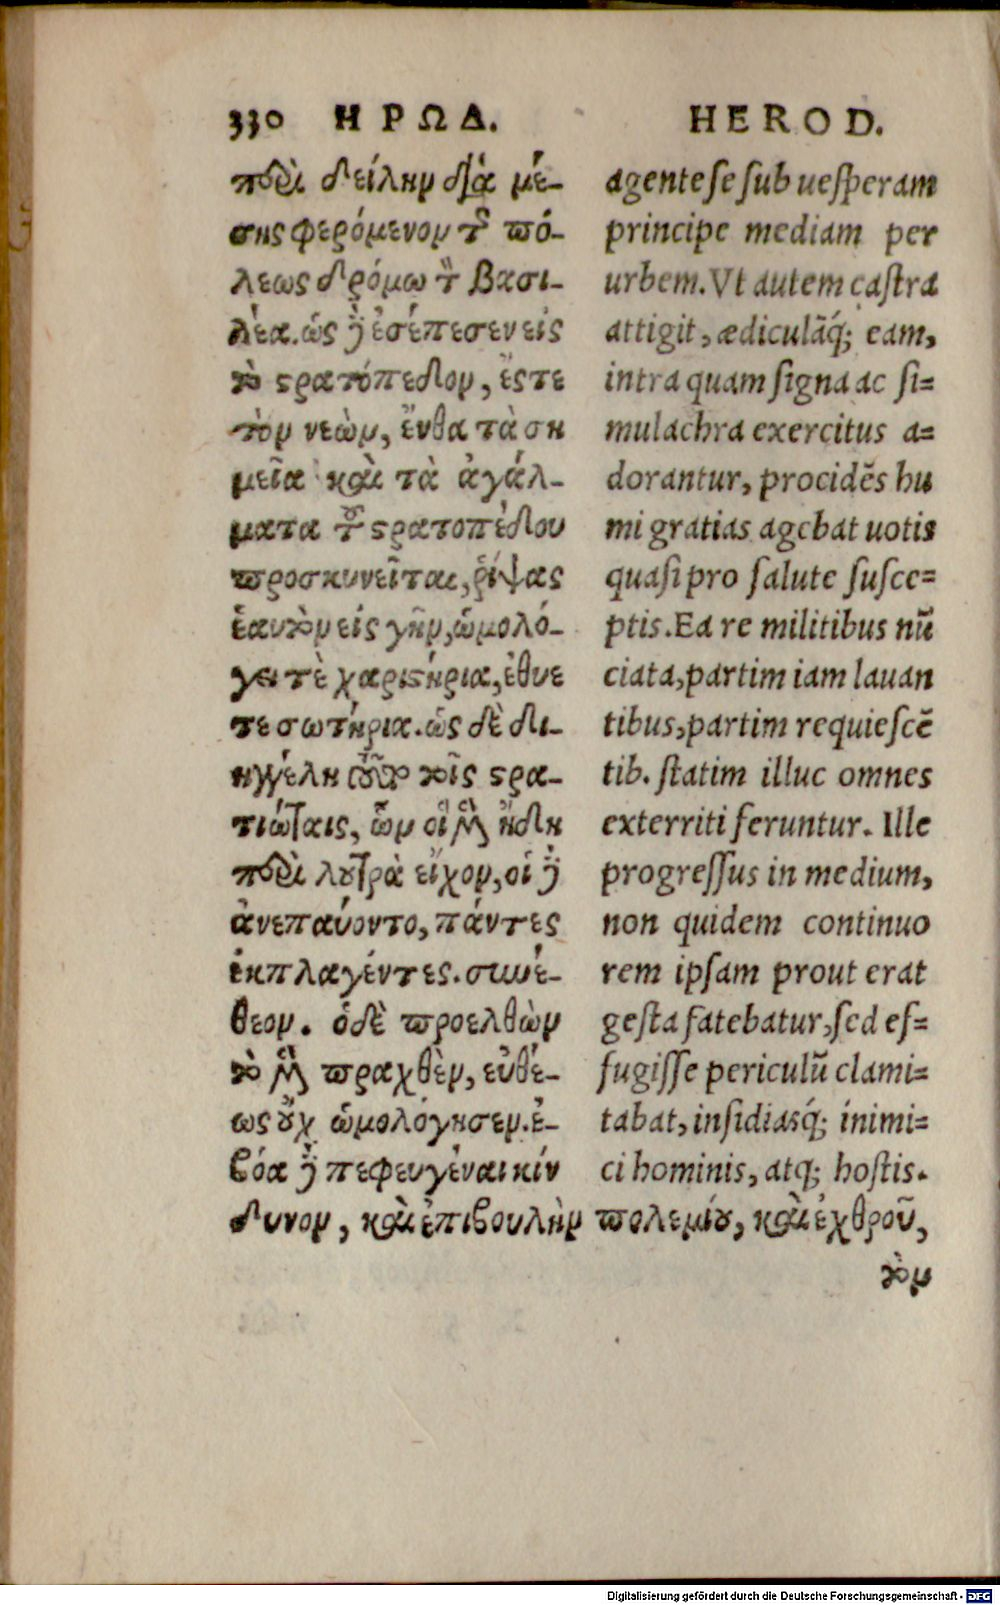 330 ΗΡΩΔ. HEROD.
περὶ δείλην διὰ μέ-
σης φερόμενον τῆς πό-
λεως δρόμῳ τὸν βασι-
λέα. ὡς δὲ ἐσέπεσεν εἰς
τὸ στρατόπεδον, ἔς τε
τὸν νεὼν, ἔνθα τὰ ση
μεῖα καὶ τὰ ἀγάλ-
ματα τοῦ στρατοπέδου
προσκυνεῖται, ῥίψας
ἑαυτὸν εἰς γῆν, ὡμολό-
γει τὲ χαριστήρια, ἔθυέ
τε σωτήρια. ὡς δὲ δι-
ηγγέλη τοῦτο τοῖς στρα-
τιώταις, ὧν οἱ μὲν ἤδη
περὶ λουτρὰ εἶχον, οἱ δὲ
ἀνεπαύοντο, πάντες
ἐκπλαγέντες. συνέ-
θεον. ὁ δὲ προελθὼν
τὸ μὲν πραχθὲν, εὐθέ-
ως οὐχ ὡμολόγησεν. ἐ-
βόα δὲ πεφευγέναι κίν
δυνον, καὶ ἐπιβουλὴν πολεμίου, καὶ ἐχθροῦ,
τὸν
agente se sub uesperam
principe mediam per
urbem. Vt autem castra
attigit, ædiculāq́; eam,
intra quam signa ac si=
mulachra exercitus a=
dorantur, procidēs hu
mi gratias agebat uotis
quasi pro salute susce=
ptis. Ea re militibus nū
ciata, partim iam lauan
tibus, partim requiescē
tib. statim illuc omnes
exterriti feruntur. Ille
progressus in medium,
non quidem continuo
rem ipsam prout erat
gesta fatebatur, sed ef=
fugisse periculū clami=
tabat, insidiasq́; inimi=
ci hominis, atq; hostis.
Digitalisierung gefördert durch die Deutsche Forschungsgemeinschaft - DFG